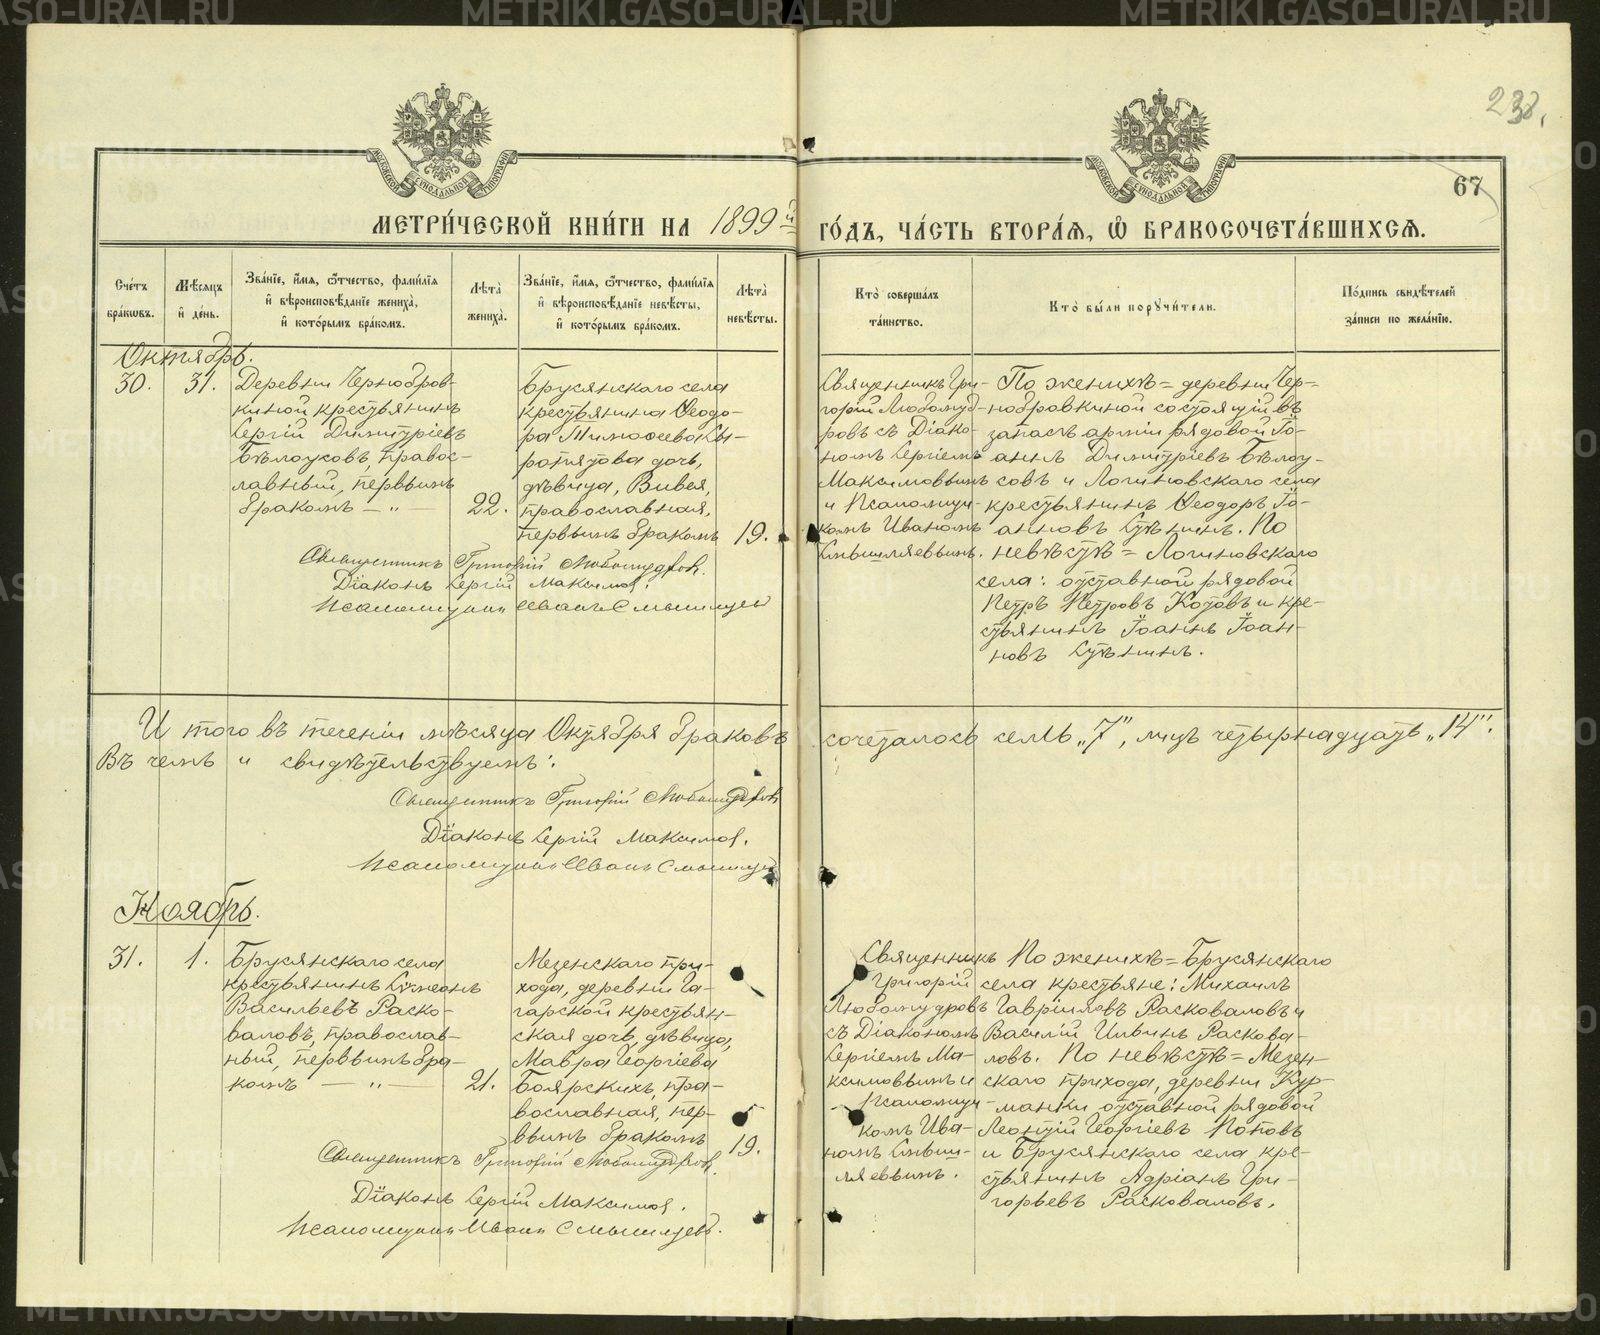 METRIKI.GASO-URAL.RU
238.
МОСКОВСКОЙ СѴНОДАЛЬНОЙ ТИПОГРАФИИ
67
МЕТРИ́ЧЕСКОЙ КНИ́ГИ НА 1899й ГО́ДЪ, ЧА́СТЬ ВТОРА́Ѧ, Ѡ҆ БРАКОСОЧЕТА́ВШИХСѦ.
Сче́тъ бра́кѡвъ.
Мѣ́сѧцъ и҆ де́нь.
Зва́нїе, и҆́мѧ, ѻ҆́тчество, фами́лїѧ и҆ вѣроисповѣ́данїе жениха̀, и҆ кото́рымъ бра́комъ.
Лѣ́та жениха̀.
Зва́нїе, и҆́мѧ, ѻ҆́тчество, фами́лїѧ и҆ вѣроисповѣ́данїе невѣ́сты, и҆ кото́рымъ бра́комъ.
Лѣ́та невѣ́сты.
Кто̀ соверша́лъ та́инство.
Кто̀ бы́ли порꙋчи́тели.
По́дпись свидѣ́телей за́писи по жела́нїю.
Октябрь.
30. 31.
Деревни Чернобров-
киной крестьянинъ
Сергій Димитріевъ
Бѣлоусовъ, правос-
лавный, первымъ
бракомъ — „ — 22.
Брусянскаго села
крестьянина Ѳеодо-
ра Тимоѳеева Сы-
ропятова дочь,
дѣвица, Вивея,
православная,
первымъ бракомъ 19.
Священникъ Гри-
горій Любомуд-
ровъ съ Діако-
номъ Сергіемъ
Максимовымъ
и Псаломщи-
комъ Иваномъ
Смышляевымъ.
По женихѣ = деревни Чер=
нобровкиной состоящій въ
запасѣ арміи рядовой Іо-
аннъ Димитріевъ Бѣлоу-
совъ и Логиновскаго села
крестьянинъ Ѳеодоръ Іо-
анновъ Сутѣнинъ. По
невѣстѣ = Логиновскаго
села: отставной рядовой
Петръ Петровъ Котовъ и кре-
стьянинъ Іоаннъ Іоан-
новъ Сутѣнинъ.
Священникъ Григорій Любомудровъ.
Діаконъ Сергій Максимов.
Псаломщикъ Иванъ Смышляевъ
И того въ теченіи мѣсяца Октября браковъ сочеталось семь „7“, лицъ четырнадцать „14“.
Въ чемъ и свидѣтельствуемъ:
Священникъ Григорій Любомудровъ
Діаконъ Сергій Максимов.
Псаломщикъ Иванъ Смышляевъ
Ноябрь.
31. 1.
Брусянскаго села
крестьянинъ Симеонъ
Васильевъ Раско-
валовъ, православ-
ный, первымъ бра-
комъ — „ — 21.
Мезенскаго при-
хода, деревни Га-
гарской крестьян-
ская дочь, дѣвица,
Мавра Георгіева
Боярскихъ, пра-
вославная, пер-
вымъ бракомъ 19.
Священникъ
Григорій
Любомудровъ
съ Діакономъ
Сергіемъ Ма-
ксимовымъ и
Псаломщи-
комъ Ива-
номъ Смыш-
ляевымъ.
По женихѣ = Брусянскаго
села крестьяне: Михаилъ
Гавріиловъ Расковаловъ и
Василій Ильинъ Раскова-
ловъ. По невѣстѣ = Мезен-
скаго прихода, деревни Кур-
манки отставной рядовой
Леонтій Георгіевъ Поповъ
и Брусянскаго села кре-
стьянинъ Адріанъ Гри-
горьевъ Расковаловъ.
Священникъ Григорій Любомудровъ.
Діаконъ Сергій Максимов.
Псаломщикъ Иванъ Смышляевъ.